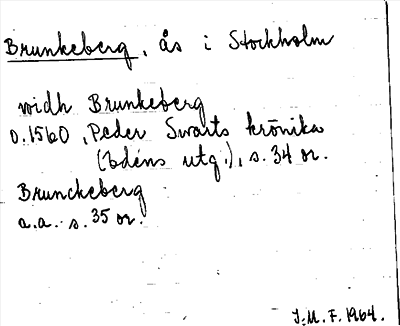 Brunkeberg, ås i Stockholm
widh Brunkeberg
o. 1560, Peder Swarts krönika
(Edéns utg.), s. 34 or.
Brunckeberg
a.a. s. 35 or.
J.M.F. 1964.